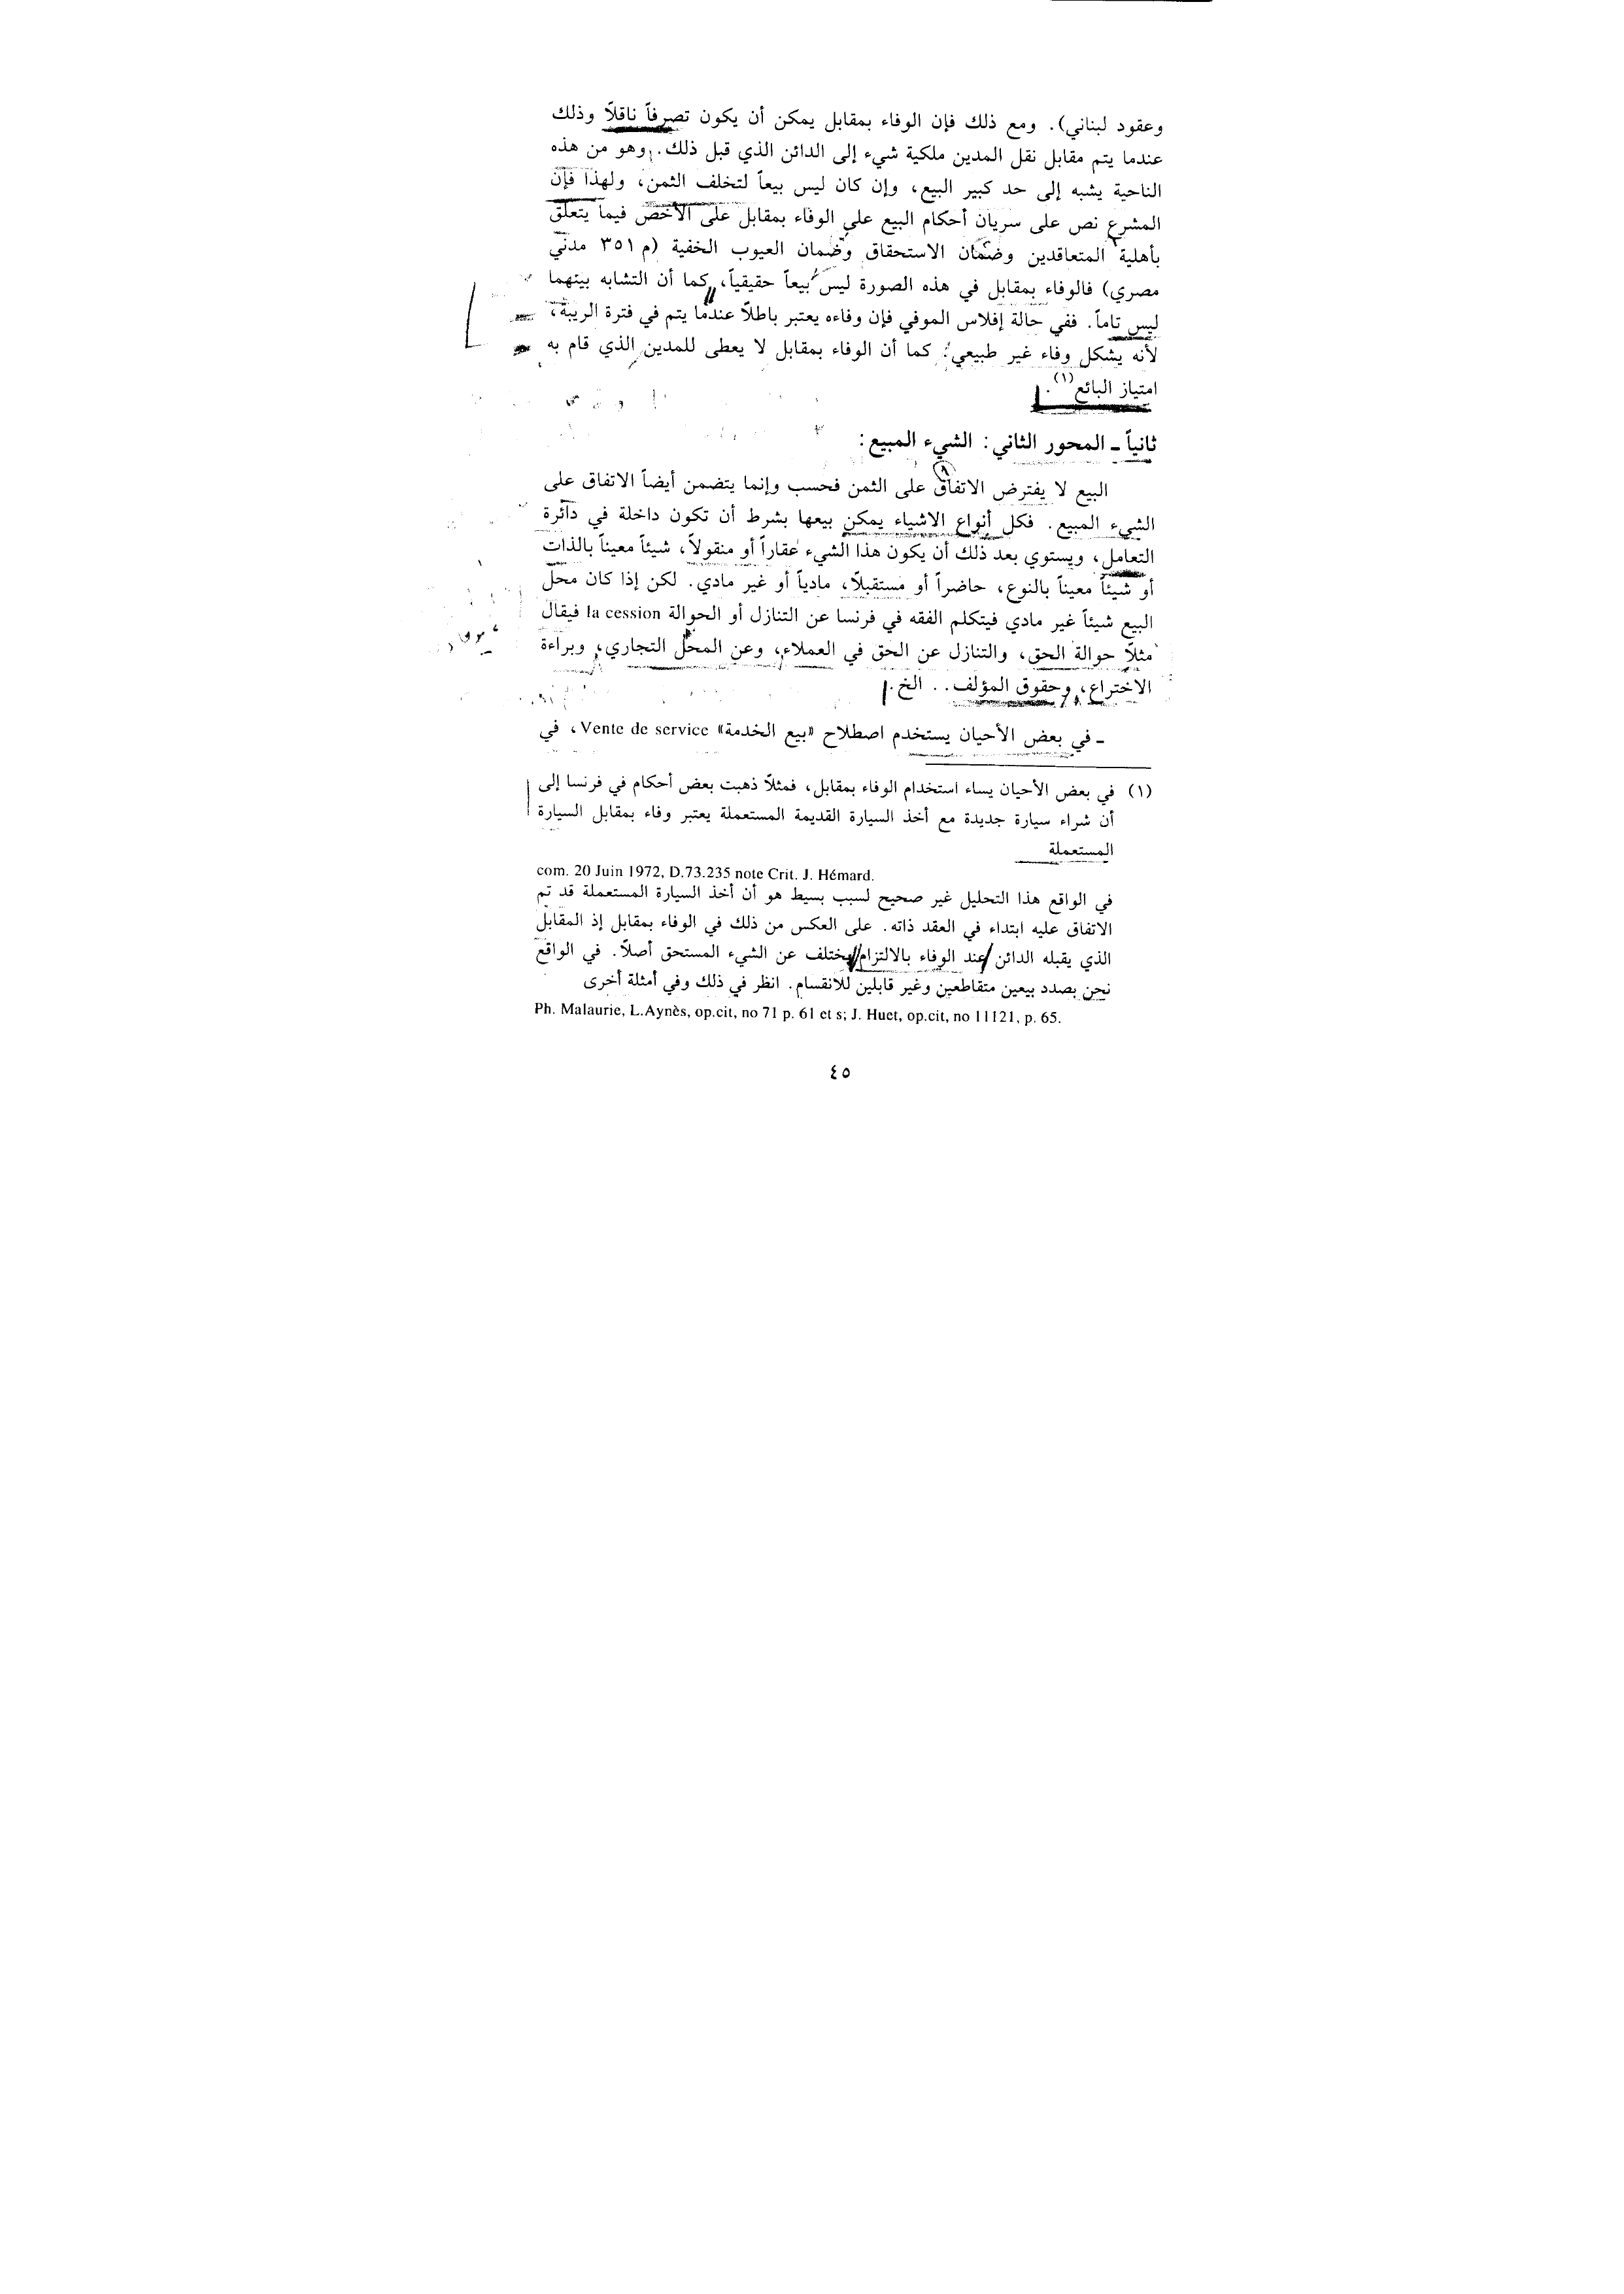 وعقود لبناني). ومع ذلك فإن الوفاء بمقابل يمكن أن يكون تصرفاً ناقلاً وذلك
عندما يتم مقابل نقل المدين ملكية شيء إلى الدائن الذي قبل ذلك. وهو من هذه
الناحية يشبه إلى حد كبير البيع، وإن كان ليس بيعاً لتخلف الثمن، ولهذا فإن
المشرع نص على سريان أحكام البيع على الوفاء بمقابل على الأخص فيما يتعلق
بأهلية المتعاقدين وضمان الاستحقاق وضمان العيوب الخفية (م ٣٥١ مدني
مصري) فالوفاء بمقابل في هذه الصورة ليس بيعاً حقيقياً، كما أن التشابه بينهما
ليس تاماً. ففي حالة إفلاس الموفي فإن وفاءه يعتبر باطلاً عندما يتم في فترة الريبة،
لأنه يشكل وفاء غير طبيعي؛ كما أن الوفاء بمقابل لا يعطى للمدين الذي قام به
امتياز البائع(١).
ثانياً ـ المحور الثاني: الشيء المبيع:
البيع لا يفترض الاتفاق على الثمن فحسب وإنما يتضمن أيضاً الاتفاق على
الشيء المبيع. فكل أنواع الاشياء يمكن بيعها بشرط أن تكون داخلة في دائرة
التعامل، ويستوي بعد ذلك أن يكون هذا الشيء عقاراً أو منقولاً، شيئاً معيناً بالذات
أو شيئاً معيناً بالنوع، حاضراً أو مستقبلاً، مادياً أو غير مادي. لكن إذا كان محل
البيع شيئاً غير مادي فيتكلم الفقه في فرنسا عن التنازل أو الحوالة la cession فيقال
مثلاً حوالة الحق، والتنازل عن الحق في العملاء، وعن المحل التجاري، وبراءة
الاختراع، وحقوق المؤلف.. الخ.
ـ في بعض الأحيان يستخدم اصطلاح «بيع الخدمة» Vente de service، في
(١) في بعض الأحيان يساء استخدام الوفاء بمقابل، فمثلاً ذهبت بعض أحكام في فرنسا إلى
أن شراء سيارة جديدة مع أخذ السيارة القديمة المستعملة يعتبر وفاء بمقابل السيارة
المستعملة
com. 20 Juin 1972, D.73.235 note Crit. J. Hémard.
في الواقع هذا التحليل غير صحيح لسبب بسيط هو أن أخذ السيارة المستعملة قد تم
الاتفاق عليه ابتداء في العقد ذاته. على العكس من ذلك في الوفاء بمقابل إذ المقابل
الذي يقبله الدائن عند الوفاء بالالتزام يختلف عن الشيء المستحق أصلاً. في الواقع
نحن بصدد بيعين متقاطعين وغير قابلين للانقسام. انظر في ذلك وفي أمثلة أخرى
Ph. Malaurie, L.Aynès, op.cit, no 71 p. 61 et s; J. Huet, op.cit, no 11121, p. 65.
٤٥